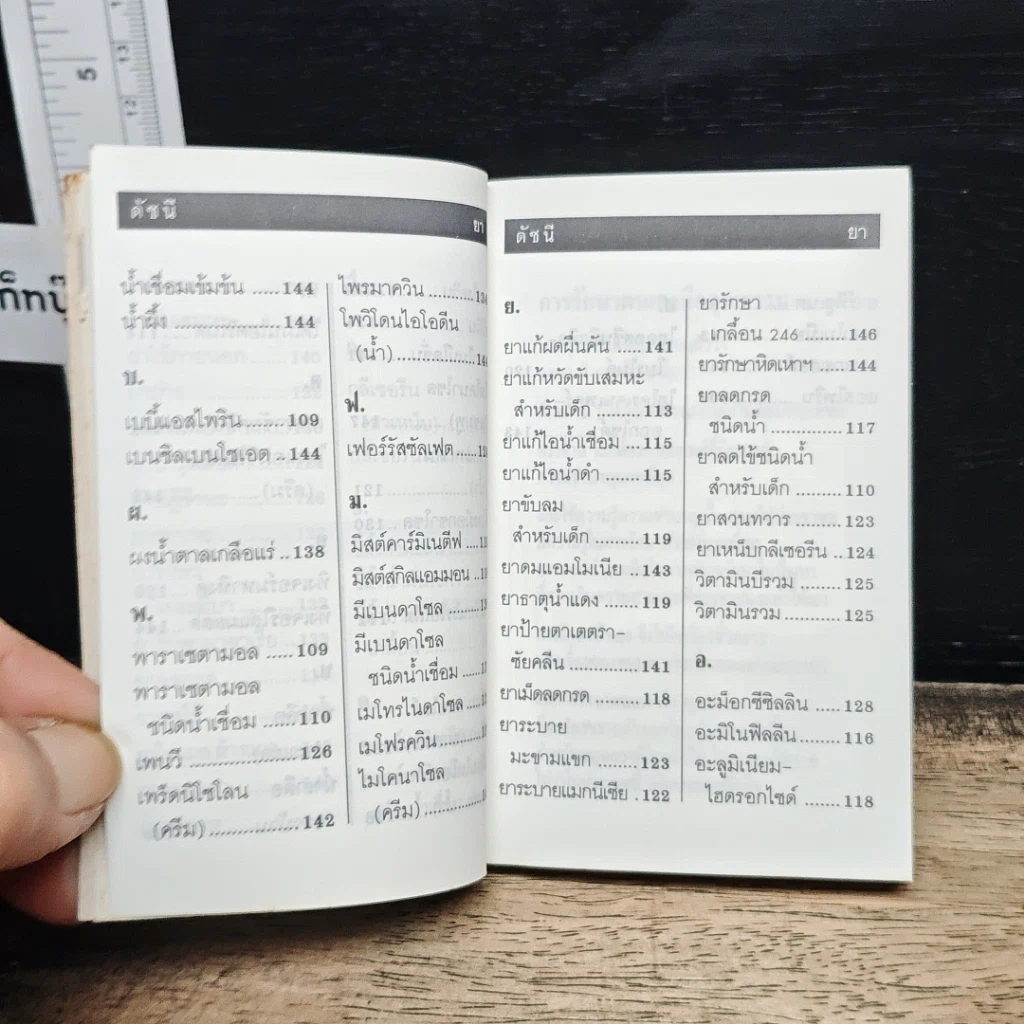 5
13
12
ดัชนี
ยา
น้ำเชื่อมเข้มข้น .....144
น้ำผึ้ง ................144
บ.
เบบี้แอสไพริน ........109
เบนซิลเบนโซเอต ..144
ผ.
ผงน้ำตาลเกลือแร่ ..138
พ.
พาราเซตามอล .....109
พาราเซตามอล
ชนิดน้ำเชื่อม ......110
เพนวี ..................126
เพร็ดนิโซโลน
(ครีม) .................142
ไพรมาควิน
โพวิโดนไอโอดีน
(น้ำ)
ฟ.
เฟอร์รัสซัลเฟต
ม.
มิสต์คาร์มิเนตีฟ
มิสต์สกิลแอมมอน
มีเบนดาโซล
มีเบนดาโซล
ชนิดน้ำเชื่อม
เมโทรไนดาโซล
เมโฟรควิน
ไมโคนาโซล
(ครีม)
ดัชนี
ยา
ย.
ยาแก้ผดผื่นคัน .....141
ยาแก้หวัดขับเสมหะ
สำหรับเด็ก ........113
ยาแก้ไอน้ำเชื่อม ...115
ยาแก้ไอน้ำดำ ......115
ยาขับลม
สำหรับเด็ก ........119
ยาดมแอมโมเนีย ..143
ยาธาตุน้ำแดง .......119
ยาป้ายตาเตตรา-
ซัยคลีน ............141
ยาเม็ดลดกรด ......118
ยาระบาย
มะขามแขก ........123
ยาระบายแมกนีเซีย .122
ยารักษา
เกลื้อน 246 ........146
ยารักษาหิดเหาฯ ....144
ยาลดกรด
ชนิดน้ำ .............117
ยาลดไข้ชนิดน้ำ
สำหรับเด็ก .........110
ยาสวนทวาร .........123
ยาเหน็บกลีเซอรีน ..124
วิตามินบีรวม ........125
วิตามินรวม ..........125
อ.
อะม็อกซีซิลลิน ......128
อะมิโนฟิลลีน ........116
อะลูมิเนียม-
ไฮดรอกไซด์ .......118